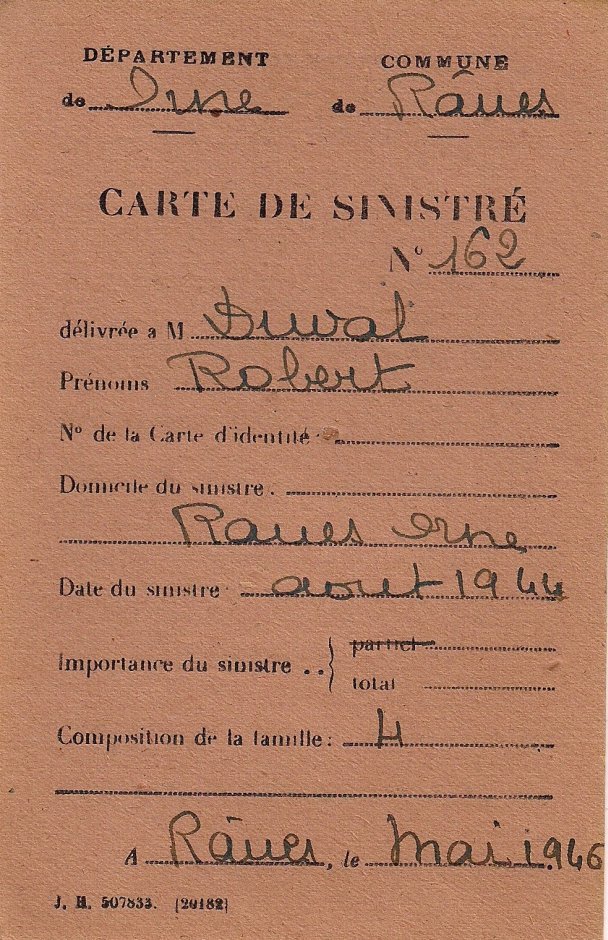 DÉPARTEMENT COMMUNE
de Orne de Rânes
CARTE DE SINISTRÉ
N° 162
délivrée a M Duval
Prénoms Robert
N° de la Carte d'identité
Domicile du sinistre.
Ranes Orne
Date du sinistre aout 1944
Importance du sinistre .. { partiel
total
Composition de la famille: 4
A Rânes, le Mai 1946
J. H. 507833. (20182)